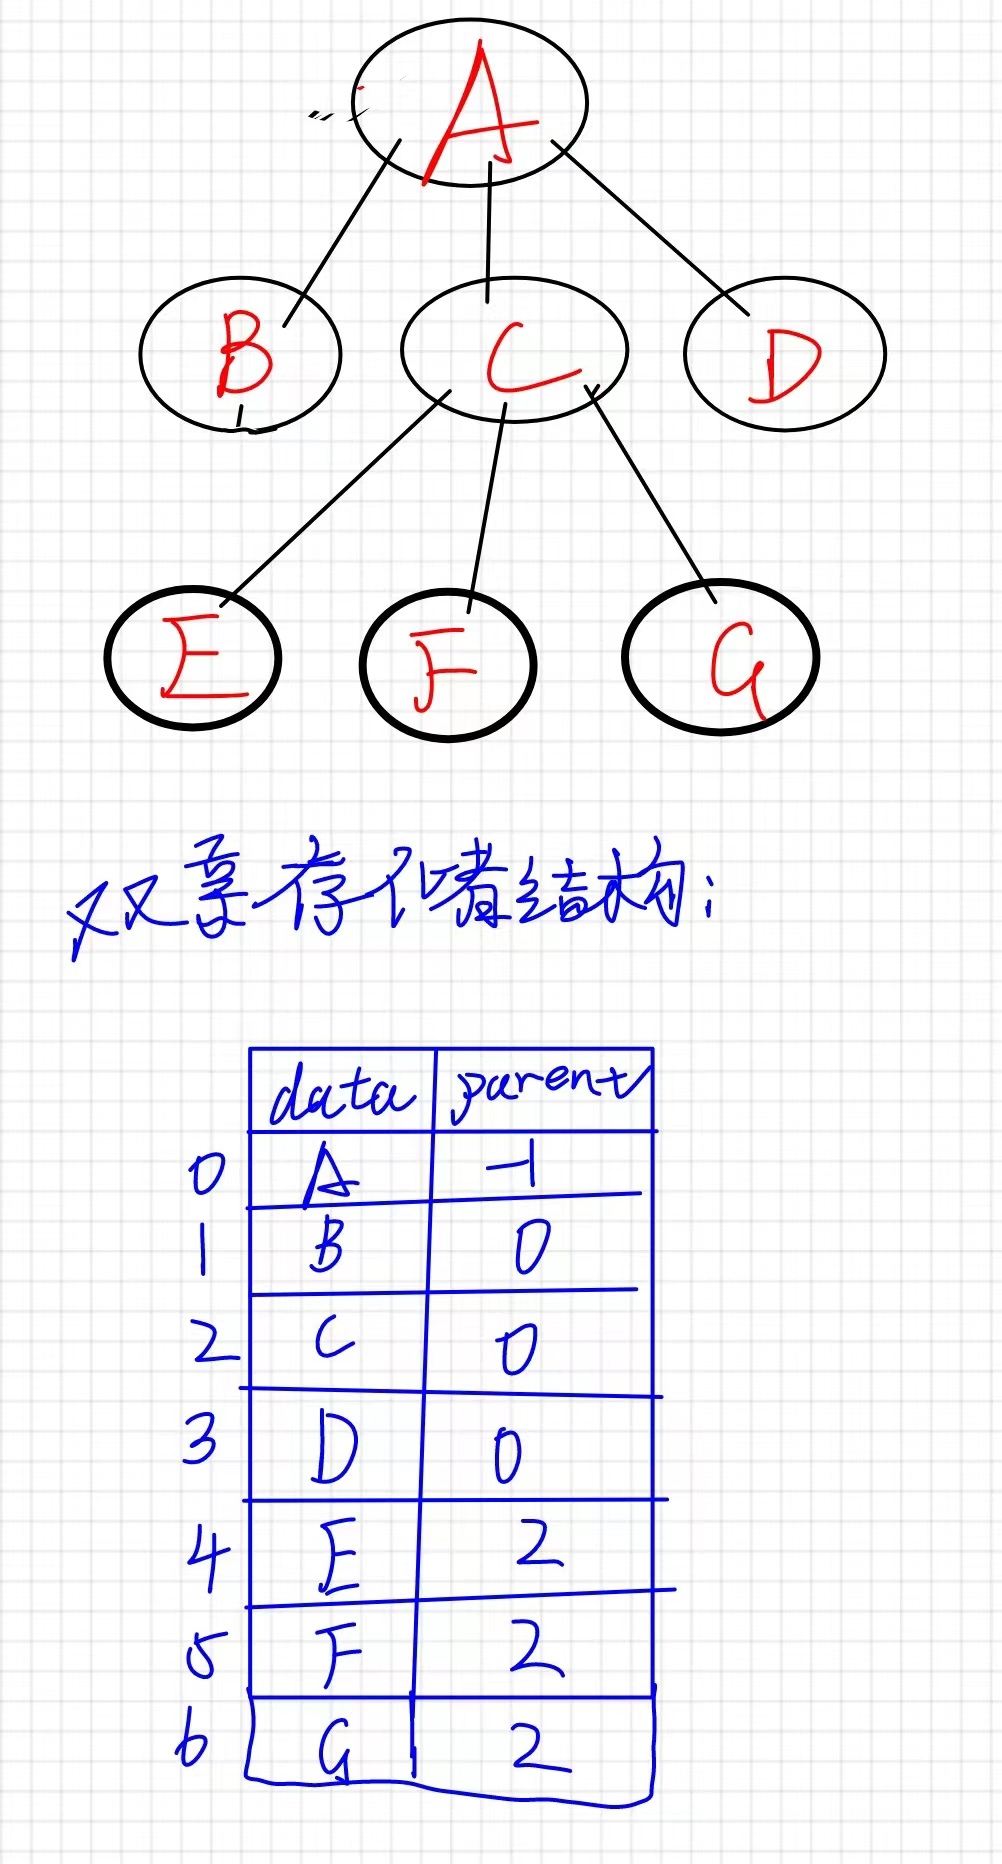 A
B C D
E F G
双亲存储结构:
data parent
0 A -1
1 B 0
2 C 0
3 D 0
4 E 2
5 F 2
6 G 2